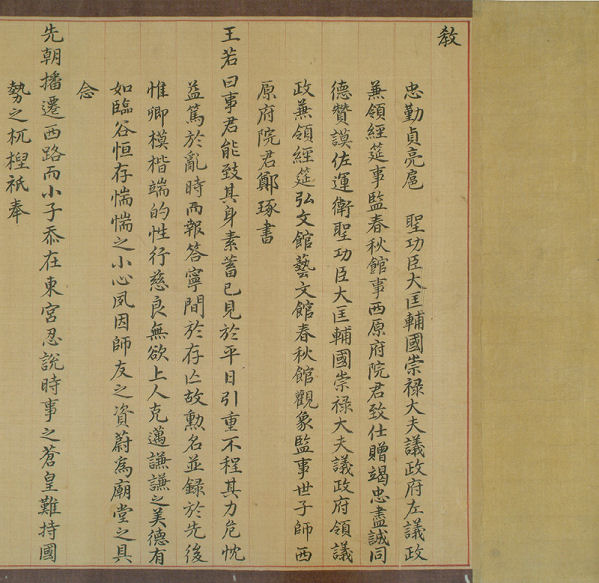 教
忠勤貞亮扈　聖功臣大匡輔國崇祿大夫議政府左議政
兼領經筵事監春秋館事西原府院君致仕贈竭忠盡誠同
德贊謨佐運衛聖功臣大匡輔國崇祿大夫議政府領議
政兼領經筵弘文館藝文館春秋館觀象監事世子師西
原府院君鄭琢書
王若曰事君能致其身素蓄已見於平日引重不程其力危忱
益篤於亂時而報答寧間於存亡故勳名並録於先後
惟卿模楷端的性行慈良無欲上人克邁謙謙之美德有
如臨谷恒存惴惴之小心夙因師友之資蔚為廟堂之具
念
先朝播遷西路而小子忝在東宮忍說時事之蒼皇難持國
勢之杌楻祇奉